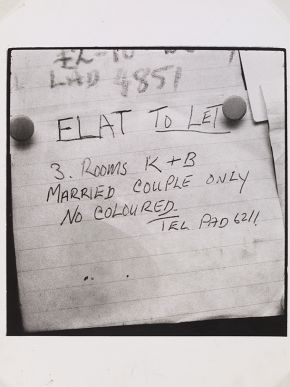 LAD 4851
FLAT TO LET
3. ROOMS K + B
MARRIED COUPLE ONLY
NO COLOURED
TEL PAD 6211